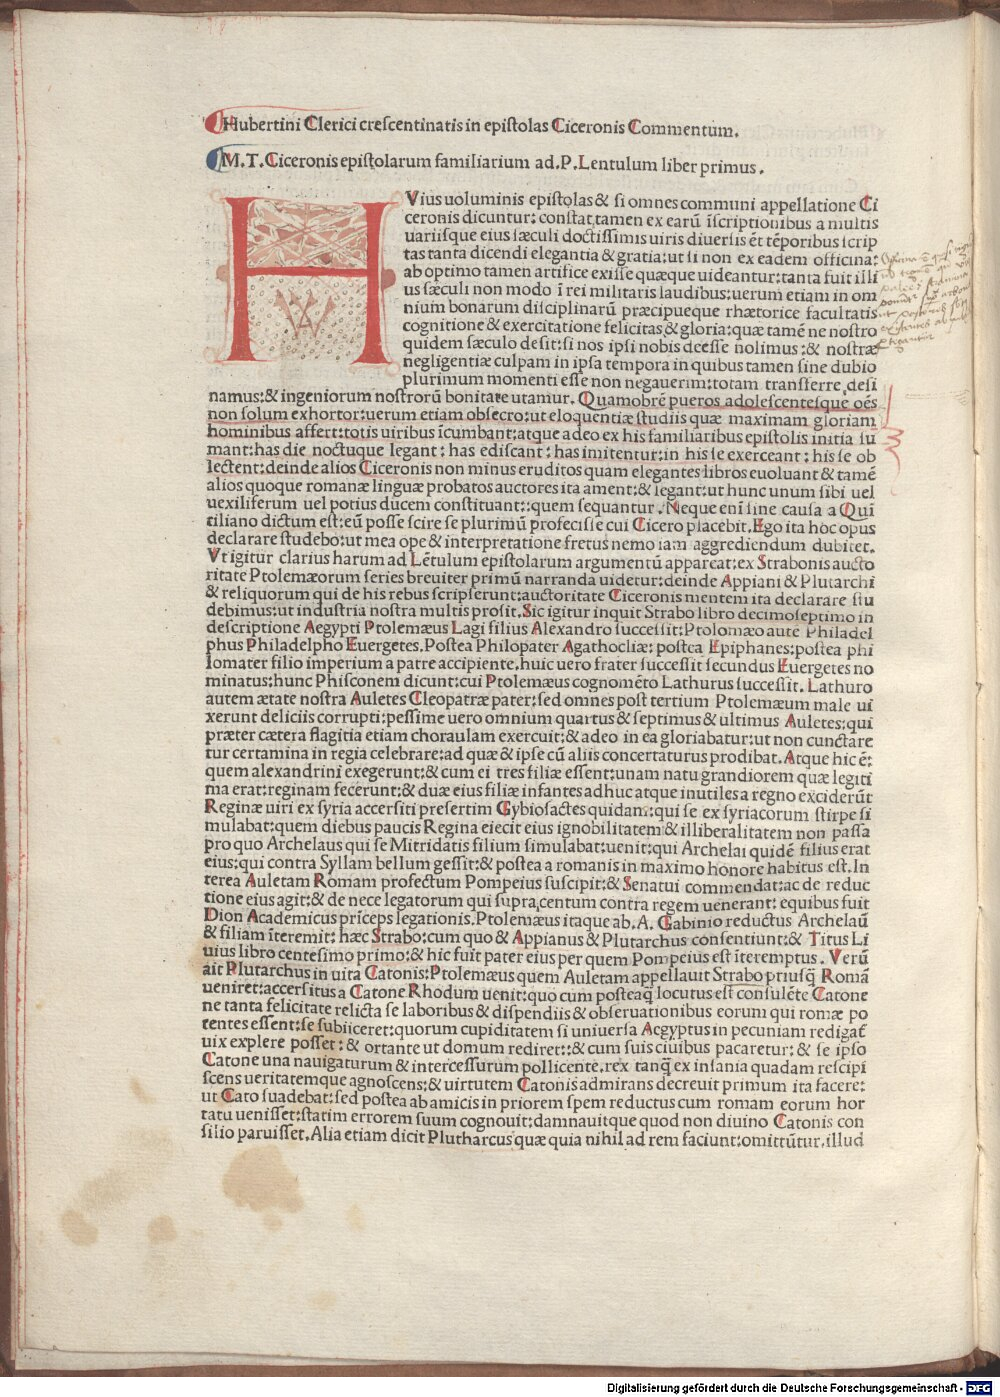 Hubertini Clerici crescentinatis in epistolas Ciceronis Commentum.
M.T.Ciceronis epistolarum familiarium ad.P.Lentulum liber primus.
HVius uoluminis epistolas & si omnes communi appellatione Ci
ceronis dicuntur: constat tamen ex earũ ĩscriptionibus a multis
uariisque eius sæculi doctissimis uiris diuersis ẽt tẽporibus scrip
tas tanta dicendi elegantia & gratia: ut si non ex eadem officina:
ab optimo tamen artifice exisse quæque uideantur: tanta fuit illi
us sæculi non modo ĩ rei militaris laudibus: uerum etiam in om
nium bonarum disciplinarũ præcipueque rhætorice facultatis
cognitione & exercitatione felicitas & gloria: quæ tamẽ ne nostro
quidem sæculo desit: si nos ipsi nobis deesse nolimus: & nostræ
negligentiæ culpam in ipsa tempora in quibus tamen sine dubio
plurimum momenti esse non negauerim: totam transferre desi
namus: & ingeniorum nostrorũ bonitate utamur. Quamobrẽ pueros adolescentesque oẽs
non solum exhortor: uerum etiam obsecro: ut eloquentiæ studiis quæ maximam gloriam
hominibus affert: totis uiribus ĩcumbant: atque adeo ex his familiaribus epistolis initia su
mant: has die noctuque legant: has ediscant: has imitentur: in his se exerceant: his se ob
lectent: deinde alios Ciceronis non minus eruditos quam elegantes libros euoluant & tamẽ
alios quoque romanæ linguæ probatos auctores ita ament: & legant: ut hunc unum sibi uel
uexiliferum uel potius ducem constituant: quem sequantur. Neque enĩ sine causa a Quĩ
tiliano dictum est: eũ posse scire se plurimũ profecisse cui Cicero placebit. Ego ita hoc opus
declarare studebo: ut mea ope & interpretatione fretus nemo iam aggrediendum dubitet.
Vt igitur clarius harum ad Lẽtulum epistolarum argumentũ appareat: ex Strabonis aucto
ritate Ptolemæorum series breuiter primũ narranda uidetur: deinde Appiani & Plutarchi
& reliquorum qui de his rebus scripserunt: auctoritate Ciceronis mentem ita declarare stu
debimus: ut industria nostra multis prosit. Sic igitur inquit Strabo libro decimoseptimo in
descriptione Aegypti Ptolemæus Lagi filius Alexandro successit: Ptolomæo autẽ Philadel
phus Philadelpho Euergetes. Postea Philopater Agathocliæ: postea Epiphanes: postea phi
lomater filio imperium a patre accipiente. huic uero frater successit secundus Euergetes no
minatus: hunc Phisconem dicunt: cui Ptolemæus cognomẽto Lathurus successit. Lathuro
autem ætate nostra Auletes Cleopatræ pater: sed omnes post tertium Ptolemæum male ui
xerunt deliciis corrupti: pessime uero omnium quartus & septimus & ultimus Auletes: qui
præter cætera flagitia etiam choraulam exercuit: & adeo in ea gloriabatur: ut non cunctare
tur certamina in regia celebrare: ad quæ & ipse cũ aliis concertaturus prodibat. Atque hic ẽ:
quem alexandrini exegerunt: & cum ei tres filiæ essent: unam natu grandiorem quæ legiti
ma erat: reginam fecerunt: & duæ eius filiæ infantes adhuc atque inutiles a regno exciderũt
Reginæ uiri ex syria accersiti presertim Cybiosactes quidam: qui se ex syriacorum stirpe si
mulabat: quem diebus paucis Regina eiecit eius ignobilitatem & illiberalitatem non passa
pro quo Archelaus qui se Mitridatis filium simulabat: uenit: qui Archelai quidẽ filius erat
eius: qui contra Syllam bellum gessit: & postea a romanis in maximo honore habitus est. In
terea Auletam Romam profectum Pompeius suscipit: & Senatui commendat: ac de reduc
tione eius agit: & de nece legatorum qui supra centum contra regem uenerant: equibus fuit
Dion Academicus prĩceps legationis. Ptolemæus itaque ab. A. Gabinio reductus Archelaũ
& filiam ĩteremit: hæc Strabo: cum quo & Appianus & Plutarchus consentiunt: & Titus Li
uius libro centesimo primo: & hic fuit pater eius per quem Pompeius est ĩteremptus. Verũ
ait Plutarchus in uita Catonis: Ptolemæus quem Auletam appellauit Strabo priusq̃ Romã
ueniret: accersitus a Catone Rhodum uenit: quo cum posteaq̃ locutus est consulẽte Catone
ne tanta felicitate relicta se laboribus & dispendiis & obseruationibus eorum qui romæ po
tentes essent: se subiiceret: quorum cupiditatem si uniuersa Aegyptus in pecuniam redigat̃
uix explere posset: & ortante ut domum rediret: & cum suis ciuibus pacaretur: & se ipso
Catone una nauigaturum & intercessurum pollicente. rex tanq̃ ex insania quadam resipi
scens ueritatemque agnoscens: & uirtutem Catonis admirans decreuit primum ita facere:
ut Cato suadebat: sed postea ab amicis in priorem spem reductus cum romam eorum hor
tatu uenisset: statim errorem suum cognouit: damnauitque quod non diuino Catonis con
silio paruisset. Alia etiam dicit Plutharcus quæ quia nihil ad rem faciunt: omittũtur. illud
Digitalisierung gefördert durch die Deutsche Forschungsgemeinschaft - DFG